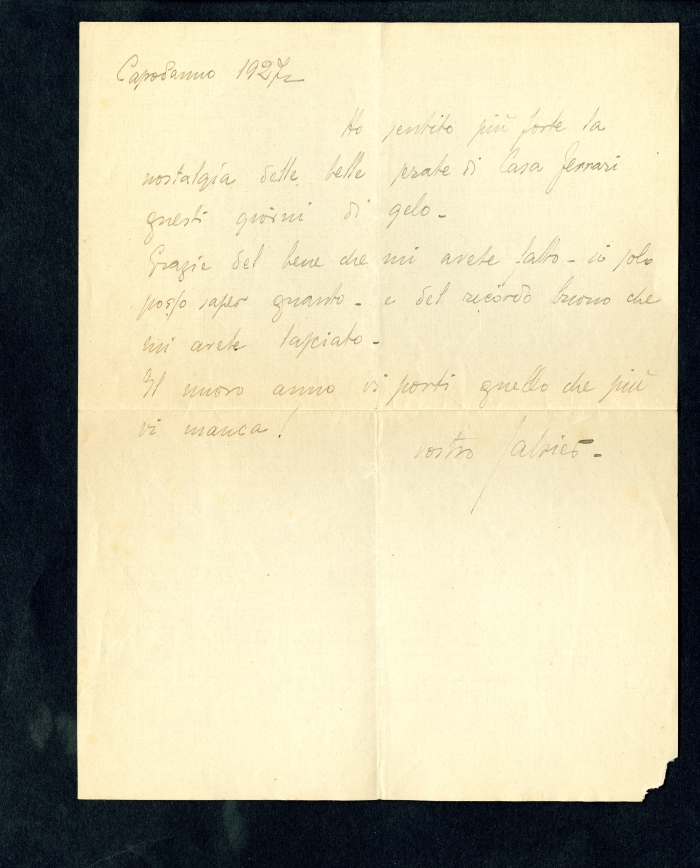 Capodanno 1927
Ho sentito più forte la
nostalgia delle belle serate di Casa Ferrari
questi giorni di gelo -
Grazie del bene che mi avete fatto - io solo
posso saper quanto - e del ricordo buono che
mi avete lasciato -
Il nuovo anno vi porti quello che più
vi manca!
vostro